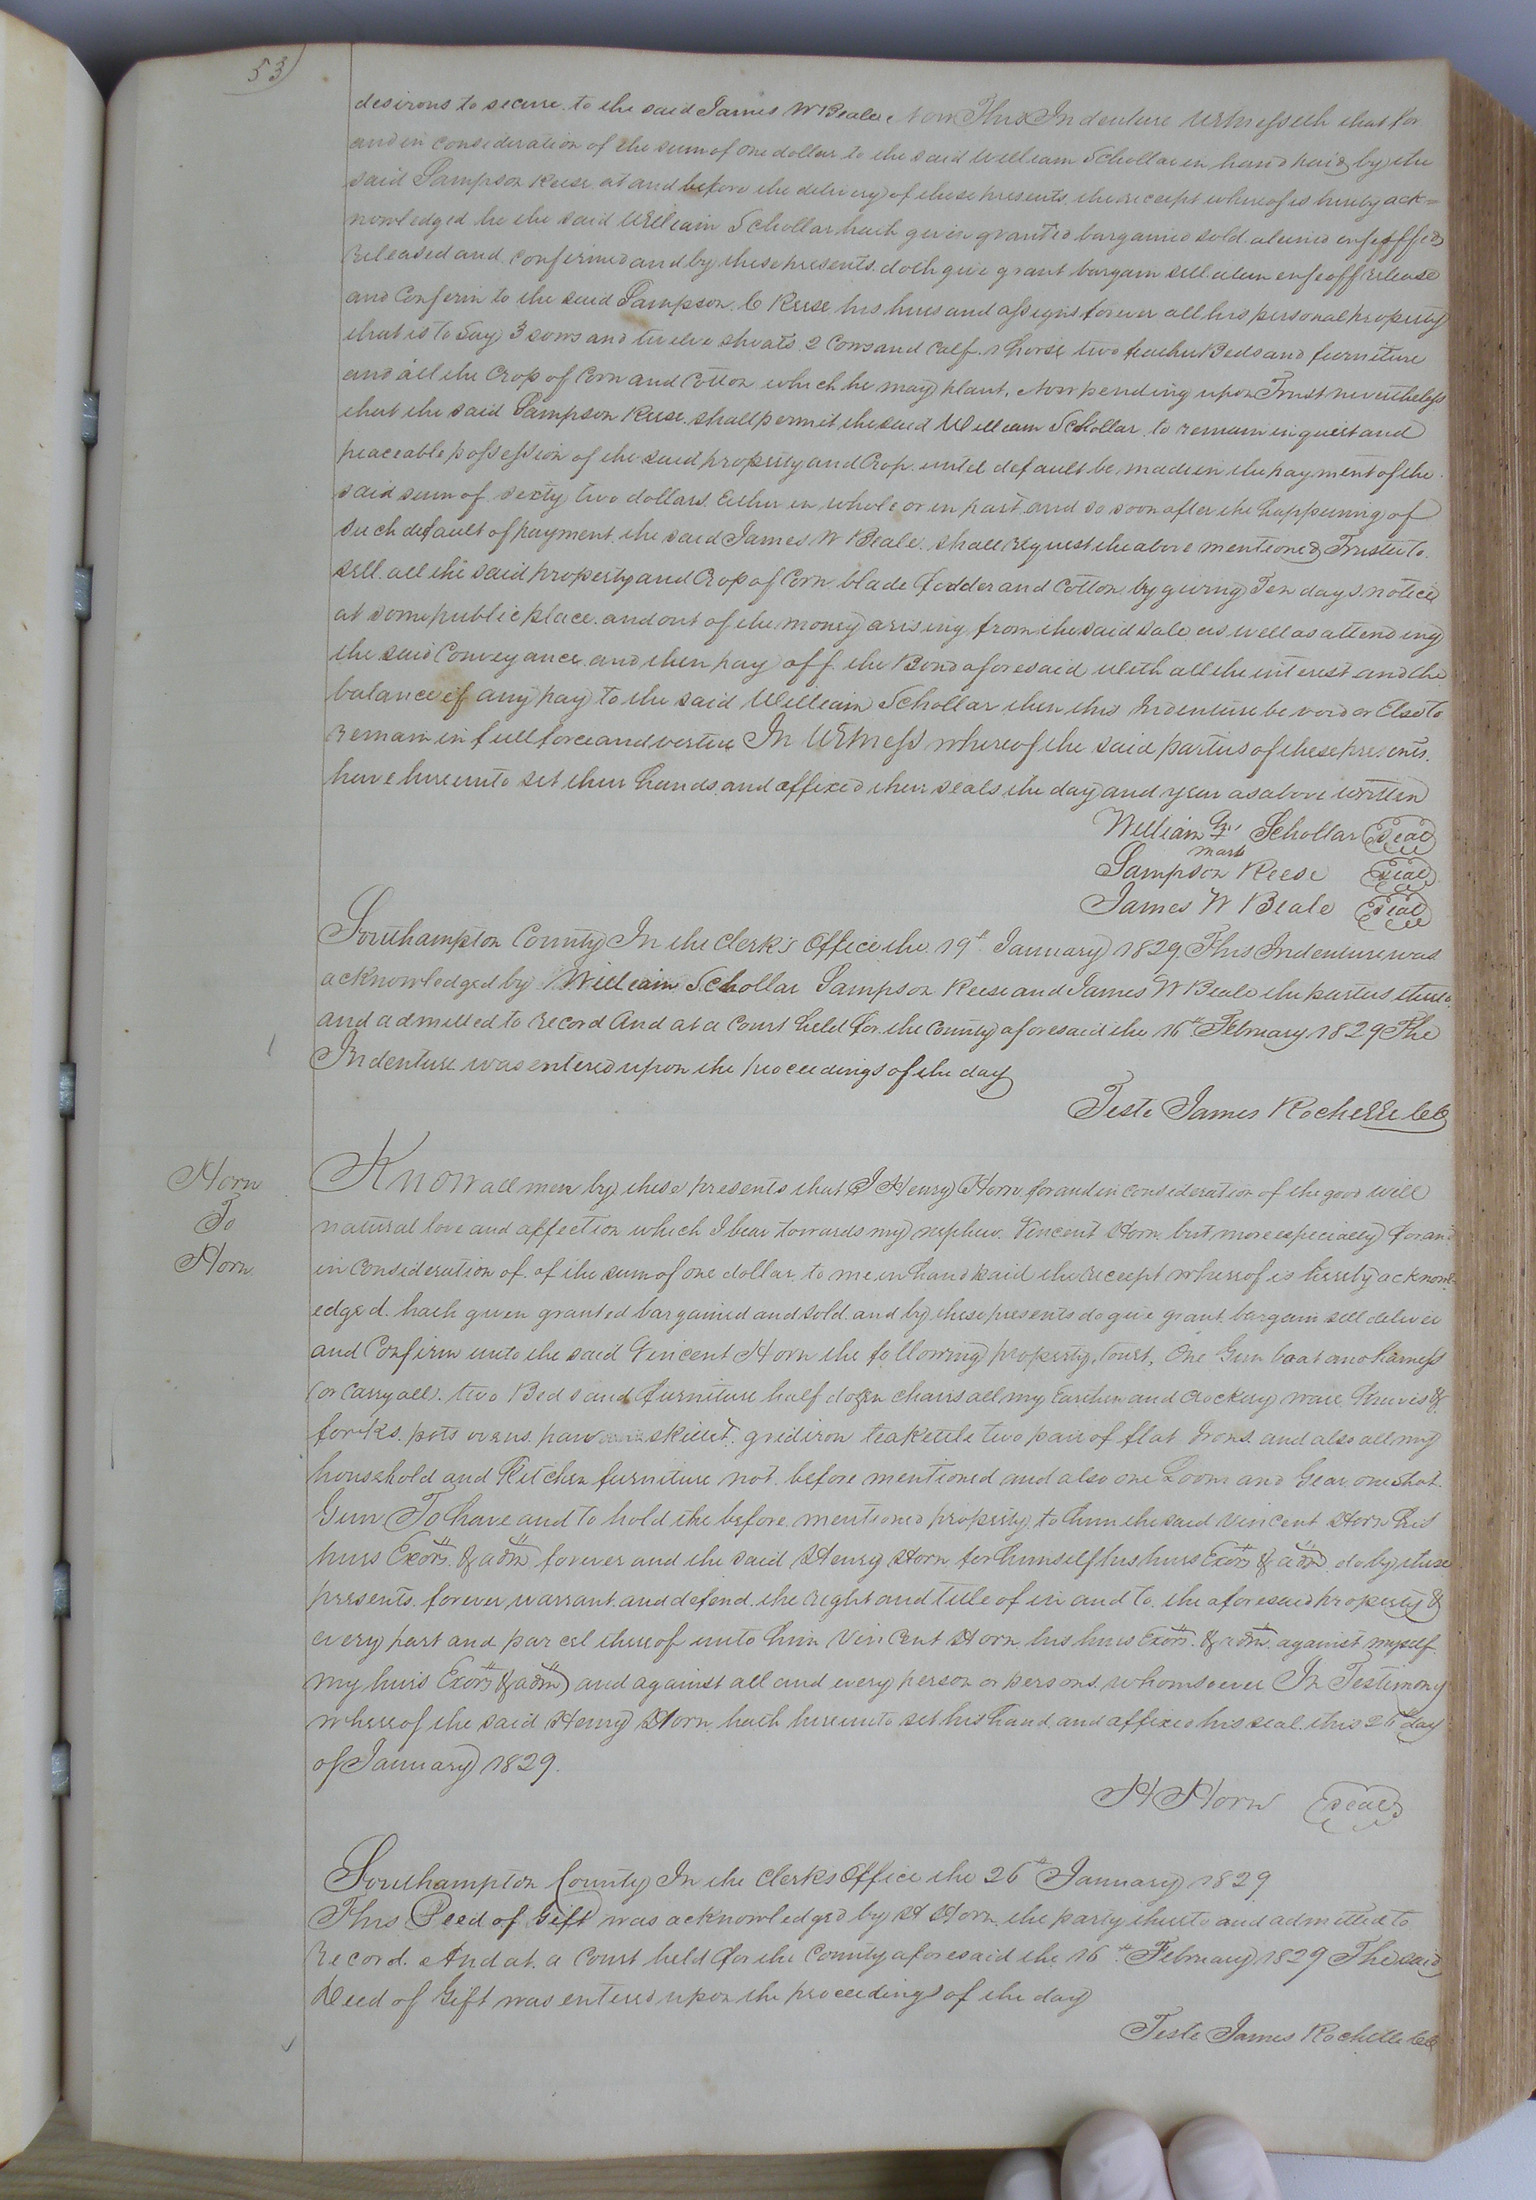 53
desirous to secure to the said James W Beale Now This Indenture Witnesseth that for
and in consideration of the sum of one dollar to the said William Schollar in hand paid by the
said Sampson Reese at and before the delivery of these presents the receipt whereof is hereby ack=
nowledged he the said William Schollar hath given granted bargained sold aliened enfeoffed
released and confirmed and by these presents doth give grant bargain sell alien enfeoff release
and Confirm to the said Sampson C Reese his heirs and assigns forever all his personal property
that is to Say 3 sows and twelve shoats 2 Cows and Calf 1 horse two feather Beds and furniture
and all the Crop of Corn and Cotton which he may plant. Now pending upon Trust nevertheless
that the said Sampson Reese shall permit the said William Schollar to remain in quiet and
peaceable possession of the said property and Crop until default be made in the payment of the
said sum of sixty two dollars Either in whole or in part and so soon after the happening of
such default of payment the said James W Beale shall request the above mentioned Trustee to
sell all the said property and Crop of Corn blade fodder and Cotton by giving Ten days notice
at some public place and out of the money arising from the said sale as well as attending
the said Conveyance and then pay off the Bond aforesaid with all the interest and the
balance if any pay to the said William Schollar then this Indenture be void or Else to
remain in full force and vertue In Witness whereof the said parties of these presents
have hereunto set their hands and affixed their seals the day and year as above written
William his X Schollar Seal
mark
Sampson Reese Seal
James W Beale Seal
Southampton County In the Clerk's Office the 19th January 1829 This Indenture was
acknowledged by William Schollar Sampson Reese and James W Beale the parties thereto
and admitted to record And at a Court held for the County aforesaid the 16th February 1829 The
Indenture was entered upon the proceedings of the day
Teste James Rochelle CC
Horn
To
Horn
Know all men by these presents that I Henry Horn for and in consideration of the good will
natural love and affection which I bear towards my nephew Vincent Horn but more especially for and
in consideration of of the sum of one dollar to me in hand paid the receipt whereof is hereby acknowl
edged hath given granted bargained and sold and by these presents do give grant bargain sell deliver
and Confirm unto the said Vincent Horn the following property, One Gun boat and harness
(or carryall). two Beds and furniture half dozen chairs all my Earthen and Crockery ware Knives &
forks. pots ovens. pan skillet. gridiron teakettle two pair of flat Irons and also all my
household and Kitchen furniture not before mentioned and also one Loom and Gear one shot
Gun To have and to hold the before mentioned property to him the said Vincent Horn his
heirs Exors & adm forever and the said Henry Horn for himself his heirs Exors & adm do by these
presents forever warrant and defend the right and title of in and to the aforesaid property &
every part and parcel thereof unto him Vincent Horn his heirs Exors & adm against myself
my heirs Exors & adm and against all and every person or persons whomsoever In Testimony
whereof the said Henry Horn hath hereunto set his hand and affixed his seal this 26th day
of January 1829.
H Horn Seal
Southampton County In the Clerks Office the 26th January 1829
This Deed of Gift was acknowledged by H Horn the party thereto and admitted to
record. And at a Court held for the County aforesaid the 16th February 1829 The said
Deed of Gift was entered upon the proceedings of the day
Teste James Rochelle CC